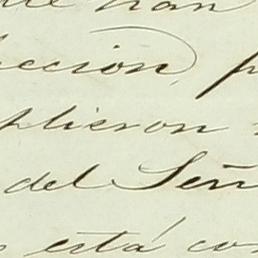 han
ccion, p
plieron
del Señ
está con